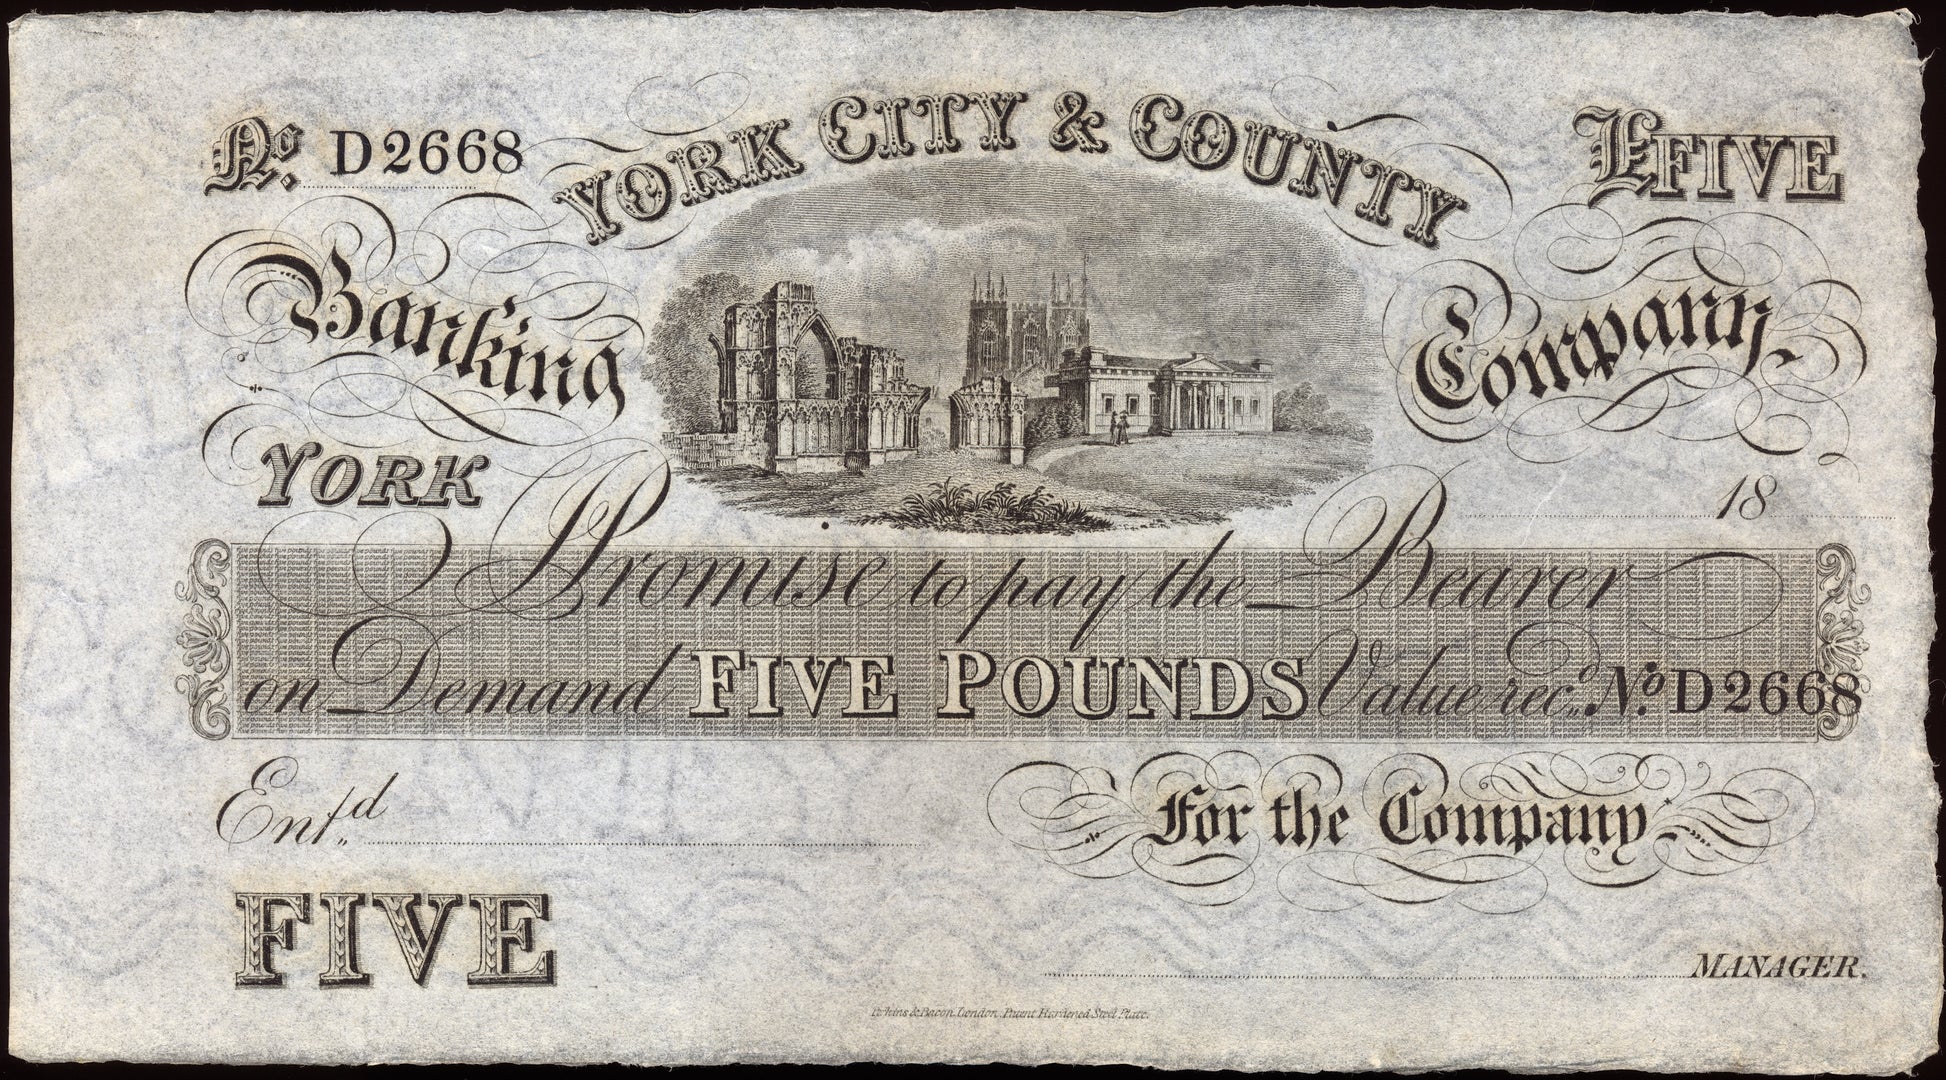 No. D2668
YORK CITY & COUNTY
£FIVE
Banking Company
YORK
18
Promise to pay the Bearer
on Demand FIVE POUNDS Value rec.d No. D2668
Ent.d
For the Company
FIVE
MANAGER.
Perkins & Bacon, London. Patent Hardened Steel Plate.